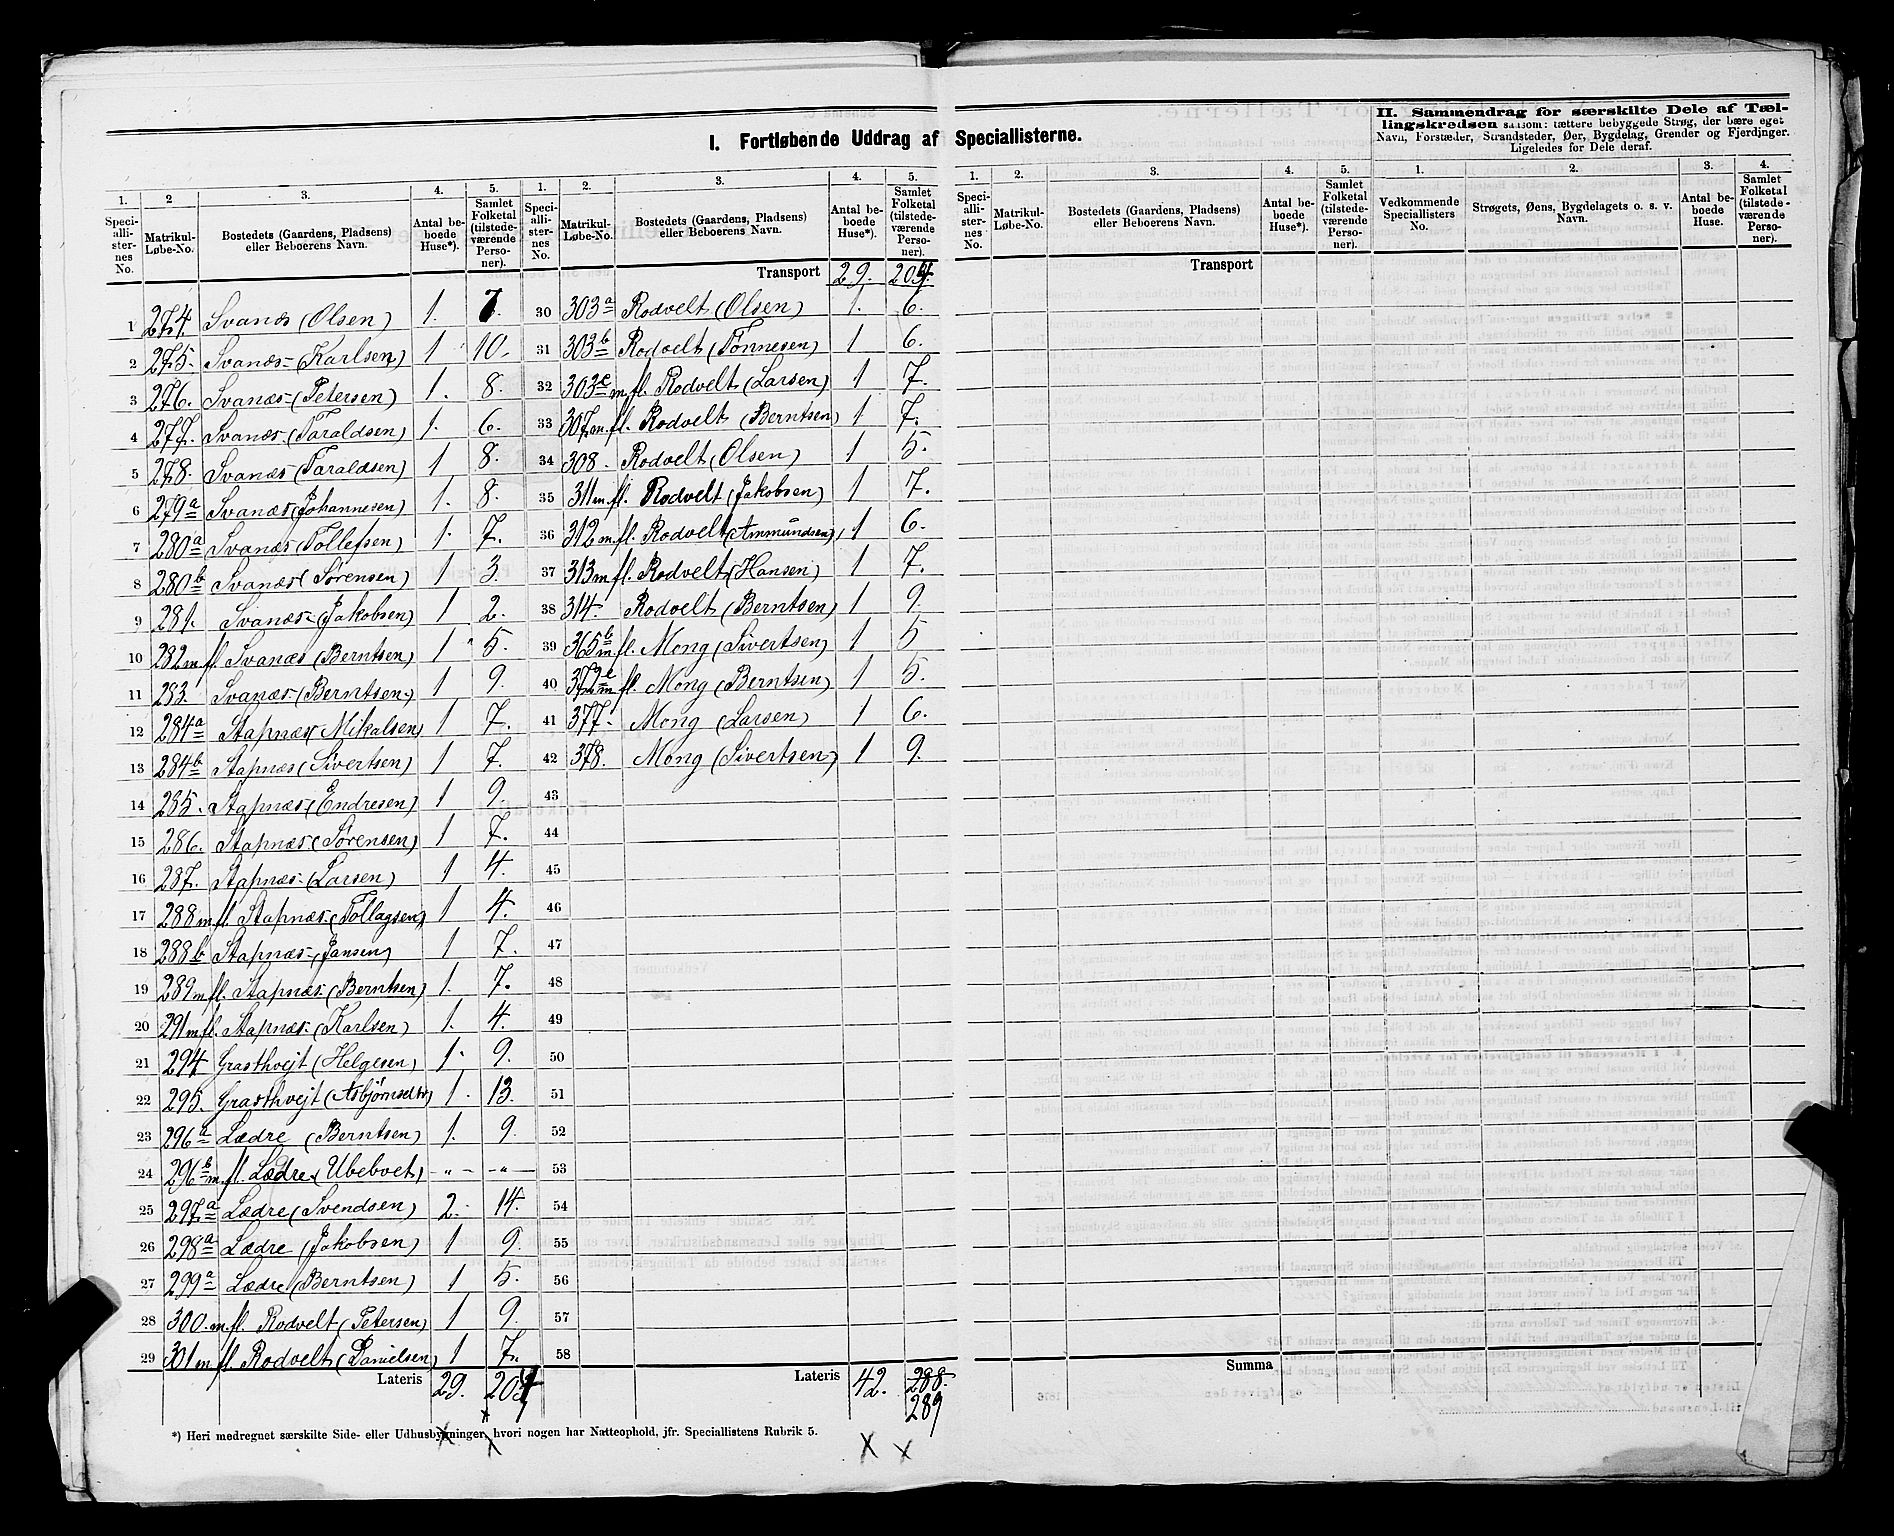 I. Fortløbende Uddrag af Speciallisterne.
II. Sammendrag for særskilte Dele af Tællingskredsen
saasom: tættere bebyggede Strøg, der bære eget
Navn, Forstæder, Strandsteder, Øer, Bygdelag, Grender og Fjerdjnger.
Ligeledes for Dele deraf.
1. 2 3. 4. 5. 1. 2. 3. 4. 5. 1. 2. 3. 4. 5. 1. 2. 3. 4.
Speciallisternes No. Matrikul-Løbe-No. Bostedets (Gaardens, Pladsens) eller Beboerens Navn. Antal beboede Huse*). Samlet Folketal (tilstedeværende Personer).
Speciallisternes No. Matrikul-Løbe-No. Bostedets (Gaardens, Pladsens) eller Beboerens Navn. Antal beboede Huse*). Samlet Folketal (tilstedeværende Personer).
Speciallisternes No. Matrikul-Løbe-No. Bostedets (Gaardens, Pladsens) eller Beboerens Navn. Antal beboede Huse*). Samlet Folketal (tilstedeværende Personer).
Vedkommende Speciallisters No. Strøgets, Øens, Bygdelagets o. s. v. Navn. Antal beboede Huse. Samlet Folketal (tilstedeværende Personer).
1 274. Svanæs (Olsen) 1. 7.
2 275. Svanæs (Karlsen) 1 10.
3 276. Svanæs (Petersen) 1. 8.
4 277. Svanæs (Taraldsen) 1. 6.
5 278. Svanæs (Taraldsen) 1 8.
6 279a Svanæs (Johannesen) 1. 8.
7 280a Svanæs (Tollefsen) 1. 7.
8 280b Svanæs (Sørensen) 1 3.
9 281. Svanæs (Jakobsen) 1 2.
10 282 m fl. Svanæs (Berntsen) 1 5.
11 283. Svanæs (Berntsen) 1 9.
12 284a Stapnæs (Mikalsen) 1 7.
13 284b Stapnæs (Sivertsen) 1 7.
14 285. Stapnæs (Endresen) 1 9.
15 286. Stapnæs (Sørensen) 1 7.
16 287. Stapnæs (Larsen) 1 4.
17 288 m. fl. Stapnæs (Tollagsen) 1 4.
18 288b Stapnæs (Jansen) 1 7.
19 289 m fl. Stapnæs (Berntsen) 1. 7.
20 291 m. fl. Stapnæs (Karlsen) 1. 4.
21 294 Grasthvejt (Helgesen) 1. 9.
22 295. Grasthvejt 1. 13.
23 296a Lædre (Berntsen) 1. 9.
24 296b m. fl. Lædre (Ubeboet) - " - - " -
25 297a Lædre (Svendsen) 2. 14.
26 298a Lædre (Jakobsen) 1 9.
27 299a Lædre (Berntsen) 1 5.
28 300. m. fl. Rodvelt (Petersen) 1 9.
29 301 m fl. Rodvelt (Danielsen) 1 7.
Lateris 29. 204
Transport 29. 204.
30 303a Rodvelt (Olsen) 1. 6.
31 303b Rodvelt (Tønnesen) 1 6.
32 303c m. fl. Rodvelt (Larsen) 1 7.
33 307 m. fl. Rodvelt (Berntsen) 1 7.
34 308. Rodvelt (Olsen) 1 5.
35 311 m. fl. Rodvelt (Jakobsen) 1 7.
36 312 m. fl. Rodvelt (Ammundsen) 1 6.
37 313 m fl. Rodvelt (Hansen) 1 7.
38 314. Rodvelt (Berntsen) 1 9.
39 365b m. fl. Mong (Sivertsen) 1 5
40 372c m. fl. Mong (Berntsen) 1 5.
41 377. Mong (Larsen) 1 6.
42 378. Mong (Sivertsen) 1 9.
43
44
45
46
47
48
49
50
51
52
53
54
55
56
57
58
Lateris 42. 288.
289
Transport
Summa
*) Heri medregnet særskilte Side- eller Udhusbygninger, hvori nogen har Natteophold, jfr. Speciallistens Rubrik 5.